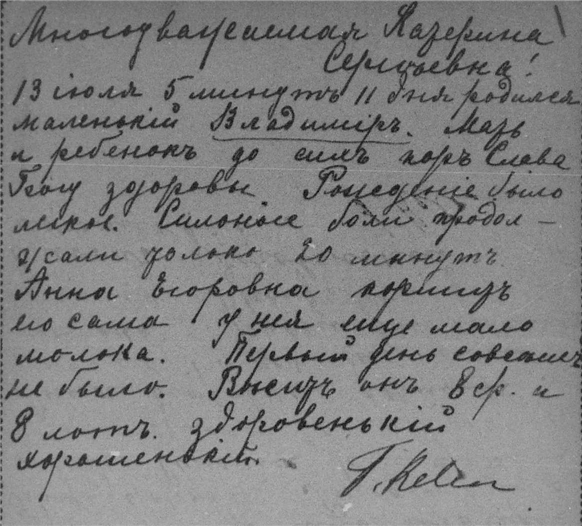 Многоуважаемая Катерина
Сергѣевна!
13 іюля 5 минутъ 11 дня родился
маленькій Владиміръ. Мать
и ребенокъ до сихъ поръ Слава
Богу здоровы Рожденіе было
легкое. Сильные боли продол-
жали только 20 минутъ.
Анна Егоровна кормитъ
его сама у нея еще мало
молока. Первый день совсѣмъ
не было. Виситъ онъ 8 ф. и
8 лотъ. здоровенькій
хорошенькій.